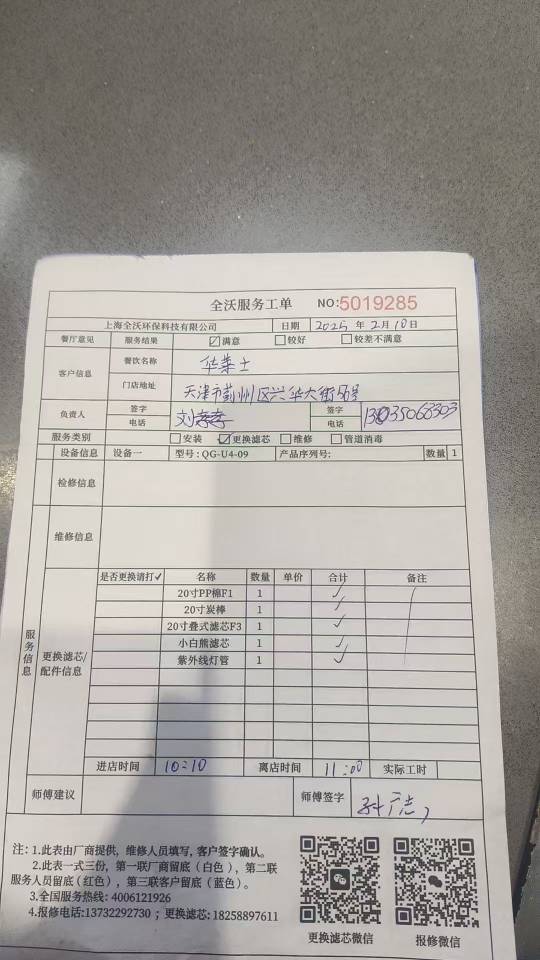 全沃服务工单 NO:5019285
上海全沃环保科技有限公司 日期 2025年2月10日
餐厅意见 服务结果 ☑满意 □较好 □较差不满意
客户信息 餐饮名称 华莱士
门店地址 天津市蓟州区兴华大街56号
负责人 签字 电话 刘孝孝 签字 电话
服务类别 □安装 ☑更换滤芯 □维修 □管道消毒
设备信息 设备一 型号:QG-U4-09 产品序列号: 数量 1
检修信息
服务信息
维修信息
更换滤芯/配件信息
是否更换请打✓ 名称 数量 单价 合计 备注
20寸PP棉F1 1 ✓
20寸炭棒 1 ✓
20寸叠式滤芯F3 1 ✓
小白熊滤芯 1 ✓
紫外线灯管 1 ✓
进店时间 10:10 离店时间 11:00 实际工时
师傅建议 师傅签字
注:1.此表由厂商提供,维修人员填写,客户签字确认。
2.此表一式三份,第一联厂商留底(白色),第二联
服务人员留底(红色),第三联客户留底(蓝色)。
3.全国服务热线:4006121926
4.报修电话:13732292730;更换滤芯:18258897611
更换滤芯微信 报修微信